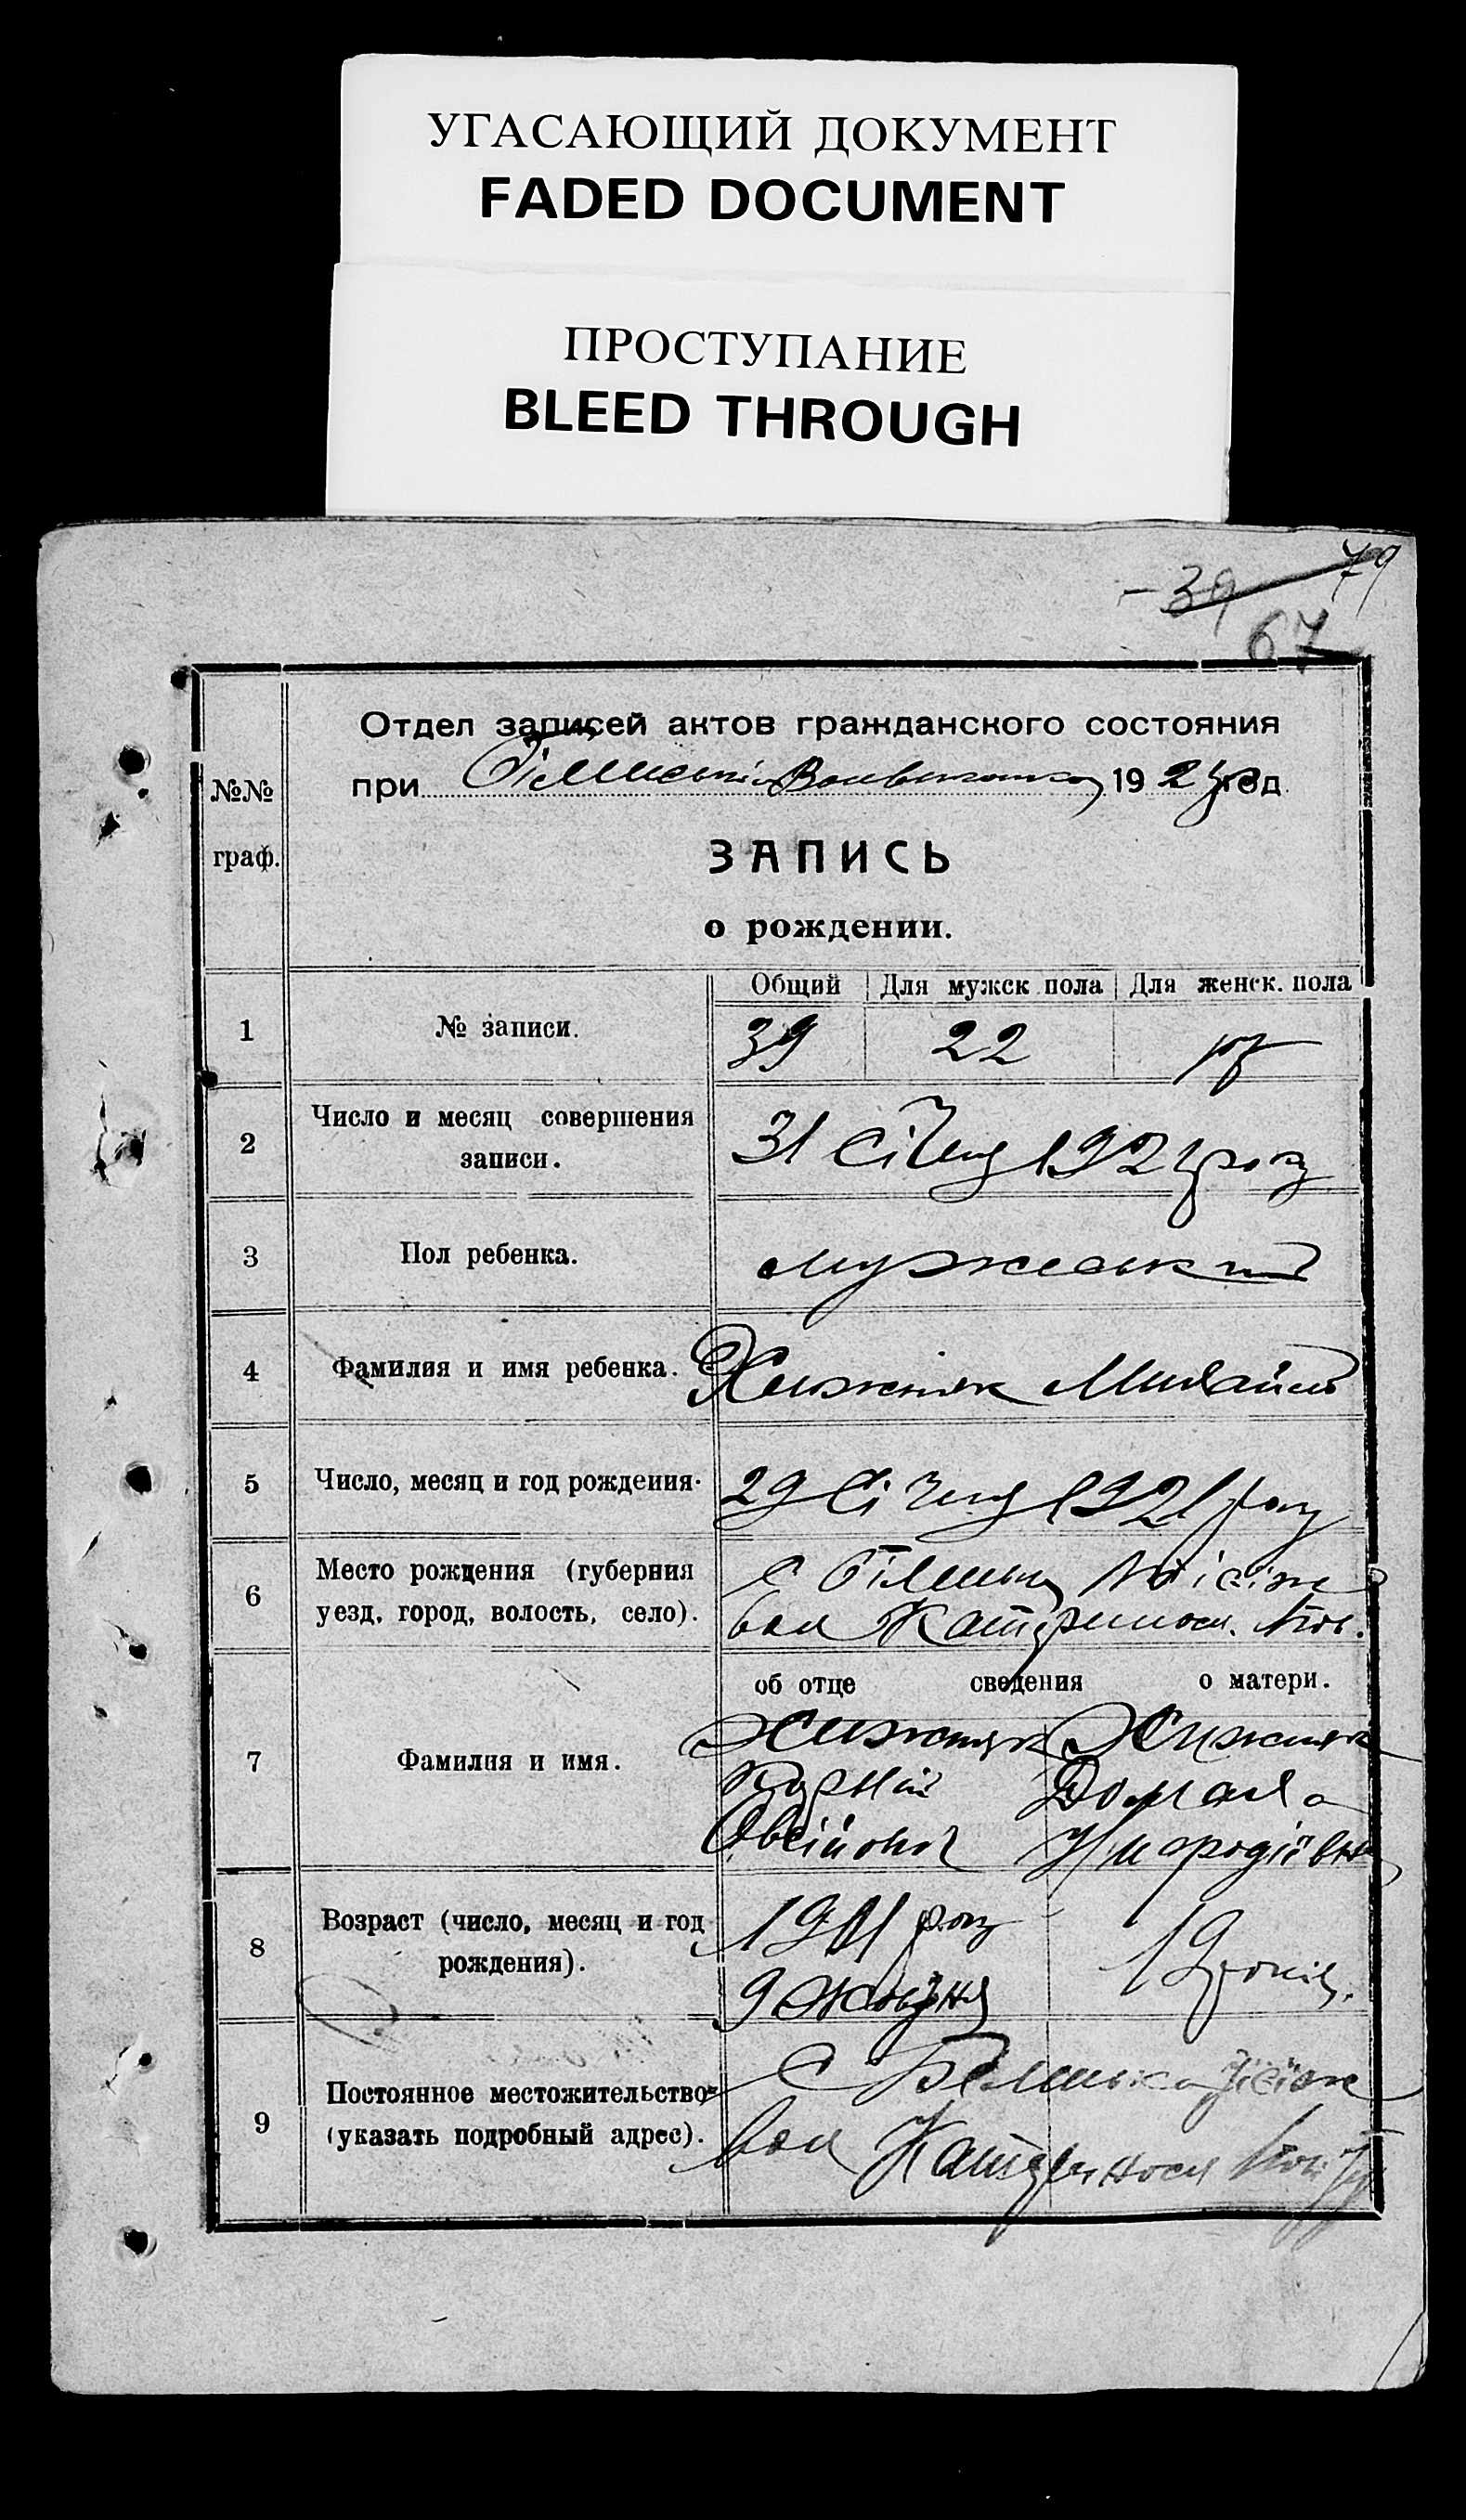 УГАСАЮЩИЙ ДОКУМЕНТ
FADED DOCUMENT
ПРОСТУПАНИЕ
BLEED THROUGH
79
39
67
Отдел записей актов гражданского состояния
при 192 год
№№
граф.
ЗАПИСЬ
о рождении.
Общий Для мужск пола Для женск. пола
1 № записи. 39 22
2 Число и месяц совершения
записи.
31 Січня 192 року
3 Пол ребенка. мужеський
4 Фамилия и имя ребенка. Хижняк Михайло
5 Число, месяц и год рождения. 29 Січня 192 року
6 Место рождения (губерния
уезд, город, волость, село).
с
вол Катериносл. пов.
об отце сведения о матери.
7 Фамилия и имя.
Хижняк Хижняк
Корній Домаха
Овсійович
8 Возраст (число, месяц и год
рождения).
року 19 років.
9 Жовтня
9 Постоянное местожительство
(указать подробный адрес).
с
вол Катериносл